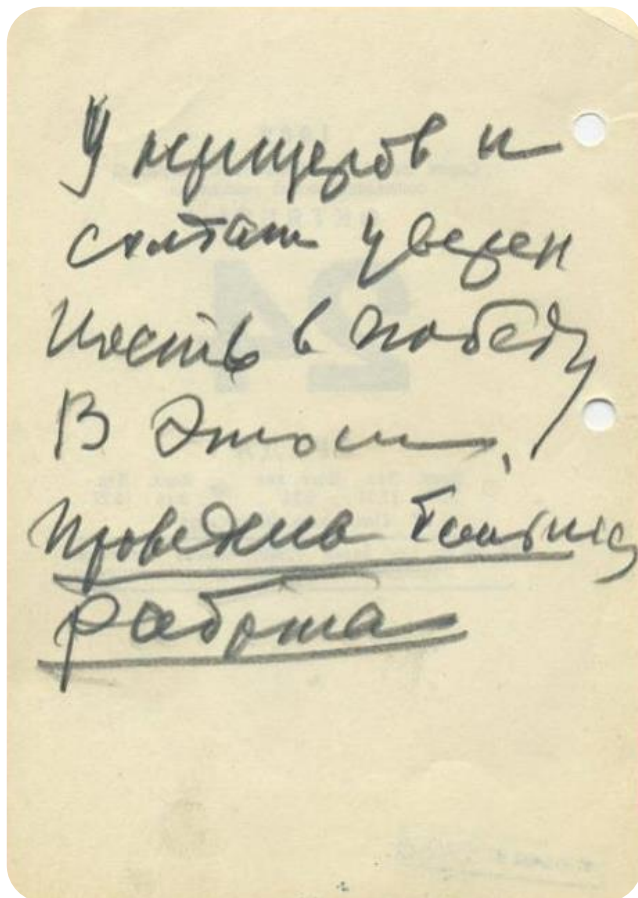 У офицеров и
солдат уверен
ность в победу
В этом
проведена большая
работа